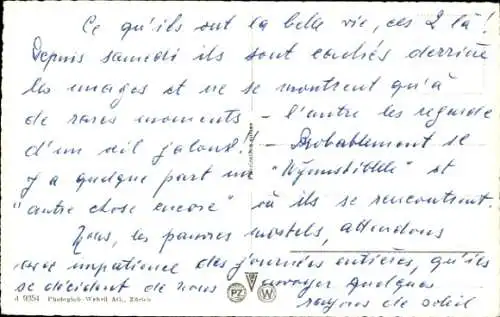 Ce qu'ils ont la belle vie, ces 2 là !
Depuis samedi ils sont cachés derrière
les nuages et ne se montrent qu'à
de rares moments - l'autre les regarde
d'un œil jaloux! - Probablement se
y a quelque part un "Wynnstübbde" et
"autre chose encore" où ils se rencontrent.
Nous, les pauvres mortels, attendons
avec impatience des journées entières, qu'ils
se décident de nous envoyer quelques
rayons de soleil
d 9354 Photoglob-Wehrli AG., Zürich PZ W